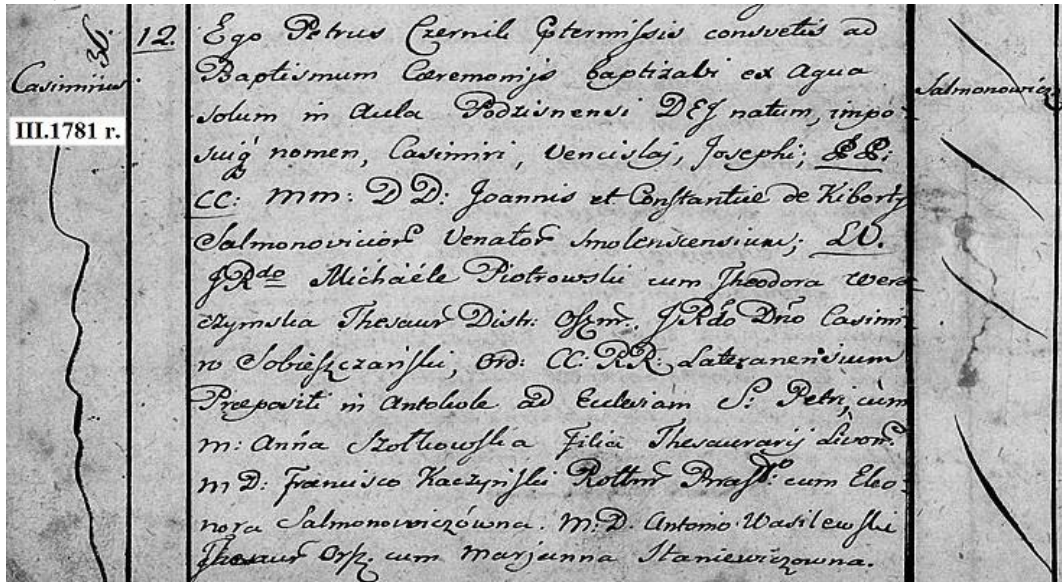 36.
12.
Casimirus
III.1781 r.
Salmonowicz
Ego Petrus Czernik Ptermissis consvetis ad
Baptismum Cæremonijs baptizabi ex Aqua
solum in Aula Podzisnensi DEJ natum, impo-
suiq nomen, Casimiri, Vencislaj, Josephi; PP:
CC: MM: DD: Joannis et Constantiæ de Kiborty
Salmonovicior Venator Smolenscensium; LL.
JRdo Michaéle Piotrowski cum Theodora Were-
czymska Thesaur Distr: Oszm. JRdo Dno Casimi-
ro Sobieszczański, Ord: CC: RR: Lateranensium
Præpositi in Antokole ad Ecclesiam S: Petri, cum
M: Anna Szołkowska Filia Thesaurarij Livon:
M D: Francisco Kaczyński Rottmr cum Eleo-
nora Salmonowiczówna. M: D. Antonio Wasilewski
Thesaur Orsz. cum Marjanna Staniewiczowna.